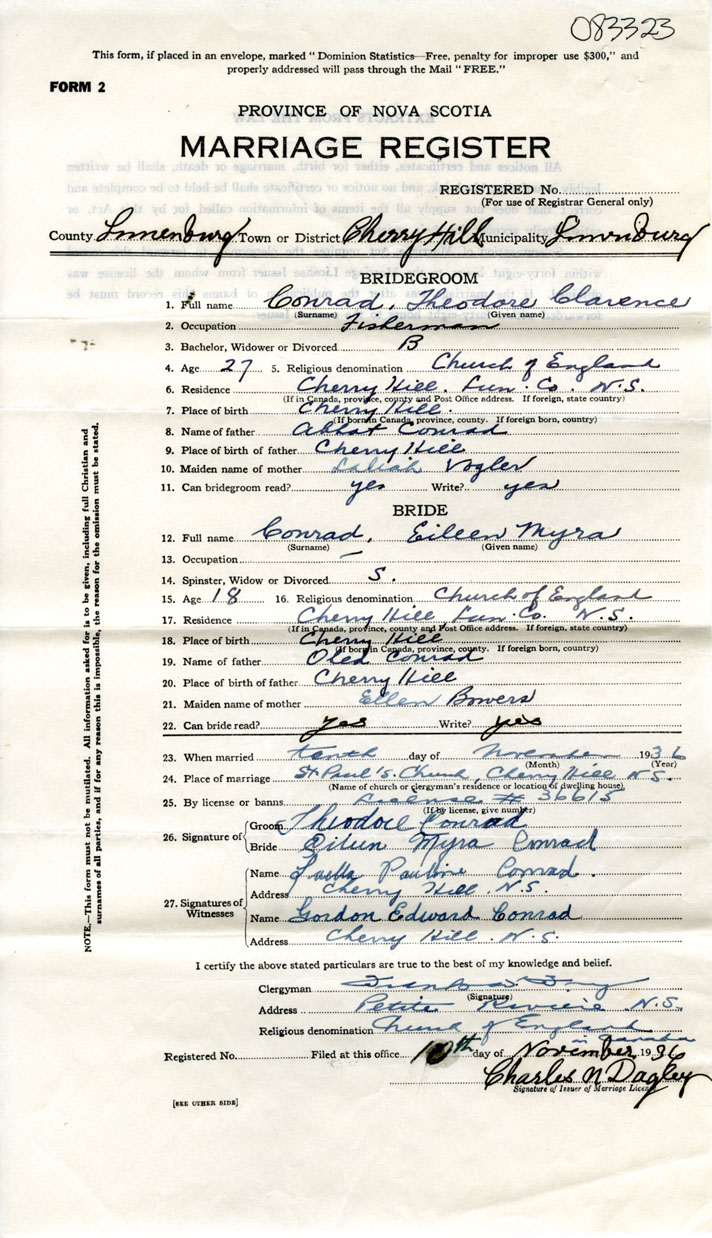 083323
This form, if placed in an envelope, marked "Dominion Statistics—Free, penalty for improper use $300," and
properly addressed will pass through the Mail "FREE."
FORM 2
PROVINCE OF NOVA SCOTIA
MARRIAGE REGISTER
REGISTERED No.
(For use of Registrar General only)
County Lunenburg Town or District Cherry Hill Municipality Lunenburg
BRIDEGROOM
1. Full name Conrad, Theodore Clarence
(Surname) (Given name)
2. Occupation Fisherman
3. Bachelor, Widower or Divorced B
4. Age 27 5. Religious denomination Church of England
6. Residence Cherry Hill. Lun. Co. N.S.
(If in Canada, province, county and Post Office address. If foreign, state country)
7. Place of birth Cherry Hill.
(If born in Canada, province, county. If foreign born, country)
8. Name of father Conrad
9. Place of birth of father Cherry Hill
10. Maiden name of mother Vogler
11. Can bridegroom read? yes Write? yes
BRIDE
12. Full name Conrad, Eileen Myra
(Surname) (Given name)
13. Occupation —
14. Spinster, Widow or Divorced S.
15. Age 18 16. Religious denomination Church of England
17. Residence Cherry Hill Lun. Co. N.S.
(If in Canada, province, county and Post Office address. If foreign, state country)
18. Place of birth Cherry Hill
(If born in Canada, province, county. If foreign born, country)
19. Name of father Conrad
20. Place of birth of father Cherry Hill
21. Maiden name of mother Ellen Bowers
22. Can bride read? yes Write? yes
23. When married tenth day of November 1936
(Month) (Year)
24. Place of marriage St. Paul's Church, Cherry Hill N.S.
(Name of church or clergyman's residence or location of dwelling house)
25. By license or banns License # 36615
(If by license, give number)
26. Signature of Groom Theodore Conrad
Bride Eileen Myra Conrad
27. Signatures of Witnesses Name Pauline Conrad.
Address Cherry Hill. N.S.
Name Gordon Edward Conrad
Address Cherry Hill. N.S.
I certify the above stated particulars are true to the best of my knowledge and belief.
Clergyman
(Signature)
Address Petite Riviere N.S.
Religious denomination Church of England
in Canada
Registered No. Filed at this office 10th day of November 1936
Charles N Dagley
Signature of Issuer of Marriage License
[SEE OTHER SIDE]
NOTE.—This form must not be mutilated. All information asked for is to be given, including full Christian and
surnames of all parties, and if for any reason this is impossible, the reason for the omission must be stated.